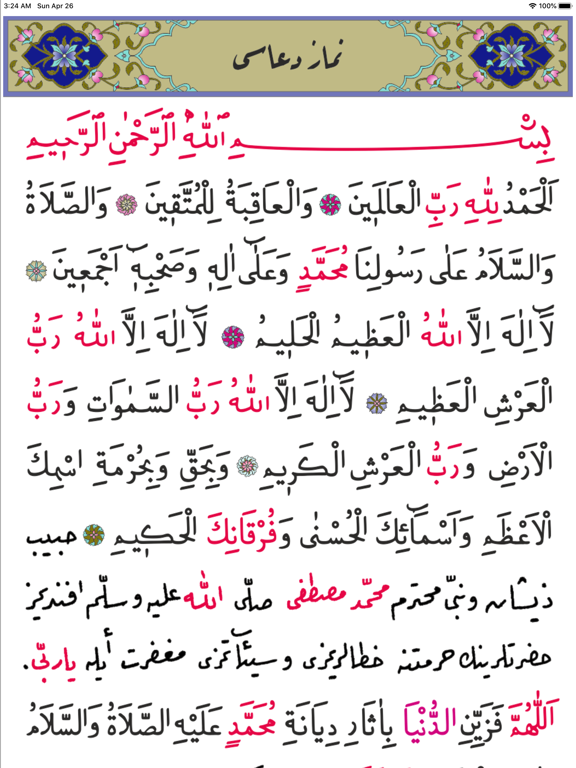 3:24 AM Sun Apr 26 100%
نماز دعاسى
بِسْمِ اللّٰهِ الرَّحْمٰنِ الرَّحٖيمِ
اَلْحَمْدُ لِلّٰهِ رَبِّ الْعَالَمٖينَ وَالْعَاقِبَةُ لِلْمُتَّقٖينَ وَالصَّلَاةُ
وَالسَّلَامُ عَلٰى رَسُولِنَا مُحَمَّدٍ وَعَلٰٓى اٰلِهٖ وَصَحْبِهٖٓ اَجْمَعٖينَ
لَٓا اِلٰهَ اِلَّا اللّٰهُ الْعَظٖيمُ الْحَلٖيمُ لَٓا اِلٰهَ اِلَّا اللّٰهُ رَبُّ
الْعَرْشِ الْعَظٖيمِ لَٓا اِلٰهَ اِلَّا اللّٰهُ رَبُّ السَّمٰوَاتِ وَرَبُّ
الْاَرْضِ وَرَبُّ الْعَرْشِ الْكَرٖيمِ وَبِحَقِّ وَبِحُرْمَةِ اسْمِكَ
الْاَعْظَمِ وَاَسْمَٓائِكَ الْحُسْنٰى وَفُرْقَانِكَ الْحَكٖيمِ حبيب
ذيشان ونبىّ محترم محمّد مصطفى صلّى اللّٰه عليه وسلّم افنديمز
حضرتلرينك حرمتنه خطالريمزى وسيئاتمزى مغفرت أيله ياربّى.
اَللّٰهُمَّ فَزَيِّنِ الدُّنْيَا بِاٰثَارِ دِيَانَةِ مُحَمَّدٍ عَلَيْهِ الصَّلَاةُ وَالسَّلَامُ